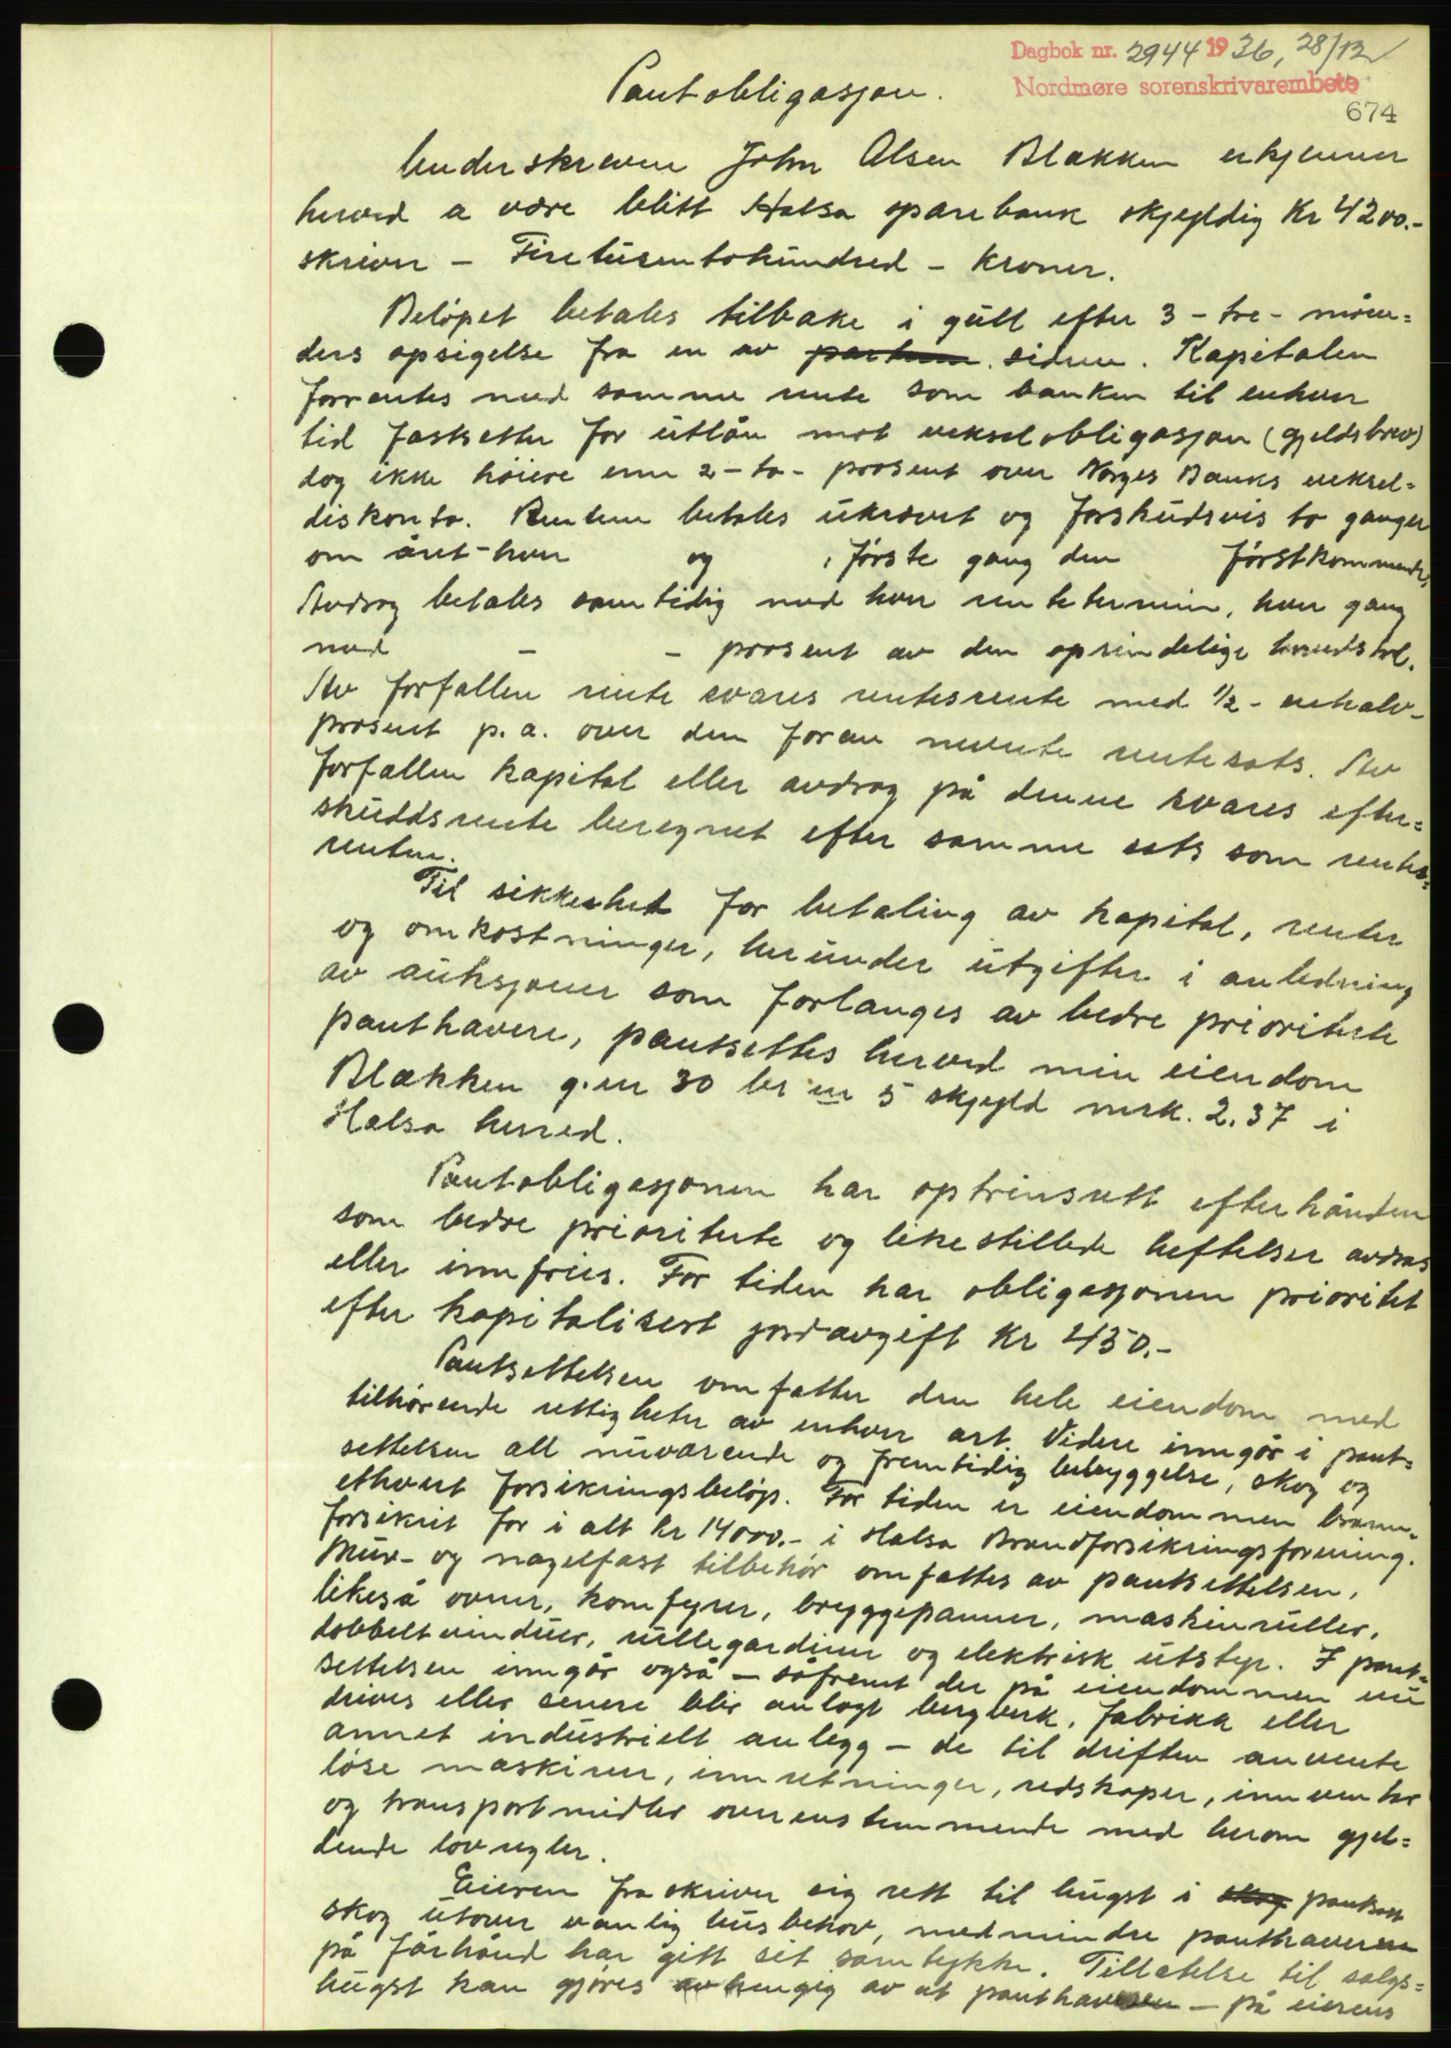 Dagbok nr. 2944 1936, 28/12
Nordmøre sorenskrivarembete
674
Pantobligasjon.
Underskreven John Olsen Blækken erkjenner
herved a være blitt Halsa sparebank skjyldig Kr 4200.-
skriver - Firetusentohundred - Kroner.
Beløpet betales tilbake i gull efter 3 - tre - måne=
ders opsigelse fra en av partene sidene. Kapitalen
forrentes med samme rente som banken til enhver
tid fastsetter for utlån mot vekselobligasjon (gjeldsbrev)
dog ikke høiere enn 2 - to - prosent over Norges Banks veksel=
diskonto. Renten betales ukrævet og forskudsvis to ganger
om året - hver og , første gang den førstkommende,
Avdrag betales samtidig med hver rentetermin, hver gang
med - - prosent av den oprindelige hovedstol.
Av forfallen rente svares rentesrente med 1/2 - enhalv -
prosent p.a. over den foran nevnte rentesats. Av
forfallen kapital eller avdrag på denne svares efter=
skuddsrente beregnet efter samme sats som rentes=
renten.
Til sikkerhet for betaling av kapital, renter
og omkostninger, herunder utgifter i anledning
av auksjoner som forlanges av bedre prioriterte
panthavere, pantsettes herved min eiendom
Blækken g.nr 30 br nr 5 skjyld mrk. 2.37 i
Halsa herred.
Pantobligasjonen har optrinsrett efterhånden
som bedre prioriterte og likestillede heftelser avdras
eller innfries. For tiden har obligasjonen prioritet
efter kapitalisert jordavgift Kr 450.-
Pantsettelsen omfatter den hele eiendom med
tilhørende rettigheter av enhver art. Videre inngår i pant=
settelsen all nuværende og fremtidig bebyggelse, skog og
ethvert forsikringsbeløp. For tiden er eiendommen brann=
forsikret for i alt kr 14000.- i Halsa Brandforsikringsforening.
Mur- og nagelfast tilbehør omfattes av pantsettelsen,
likeså ovner, komfyrer, bryggepanner, maskinruller,
dobbeltvinduer, rullegardiner og elektrisk utstyr. I pant=
settelsen inngår også - såfremt der på eiendommen nu
drives eller senere blir anlagt bergverk, fabrikk eller
annet industrielt anlegg - de til driften anvente
løse maskiner, innretninger, redskaper, inventar
og transportmidler overenstemmende med herom gjel=
dende lovregler.
Eieren fraskriver sig rett til hugst i skog pantsatt
skog utover vanlig husbehov, medmindre panthaveren
på forhånd har gitt sit samtykke. Tillatelse til salgs=
hugst kan gjøres avhengig av at panthaveren - på eierens